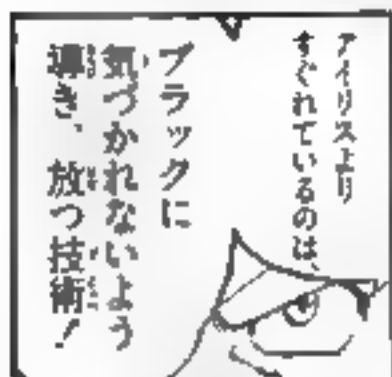 アイリスより
すぐれているのは、
ブラックに
気づかれないよう
導き、放つ技術！